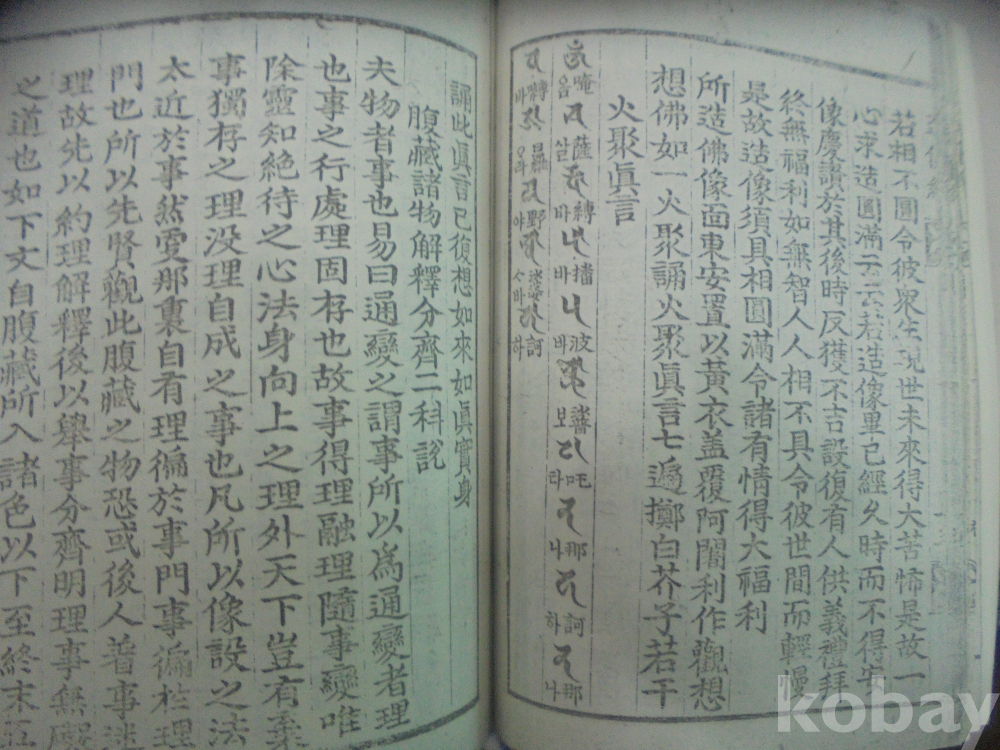 若相不圓令彼衆生現世未來得大苦怖是故一
心求造圓滿云云若造像畢已經久時而不得安
像慶讚於其後時反獲不吉設復有人供義禮拜
終無福利如無智人人相不具令彼世間而輕慢
是故造像須具相圓滿令諸有情得大福利
所造佛像面東安置以黃衣盖覆阿闍利作觀想
想佛如一火聚誦火聚眞言七遍擲白芥子若干
火聚眞言
唵 薩嚩 播波 吒 那 訶 那
옴 살바 바바 보타 나 하 나
嚩 日羅野 訶
바 아라 야 사바 하
誦此眞言已復想如來如眞實身
腹藏諸物解釋分齊二科說
夫物者事也易曰通變之謂事所以爲通變者理
也事之行處理固存也故事得理融理隨事變唯
除靈知絶待之心法身向上之理外天下豈有棄
事獨存之理没理自成之事也凡所以像設之法
太近於事然䨥那裏自有理徧於事門事徧於理
門也所以先賢觀此腹藏之物恐或後人着事迷
理故先以約理解釋後以舉事分齊明理事無
之道也如下文自腹藏所入諸色以下至終末
kobay